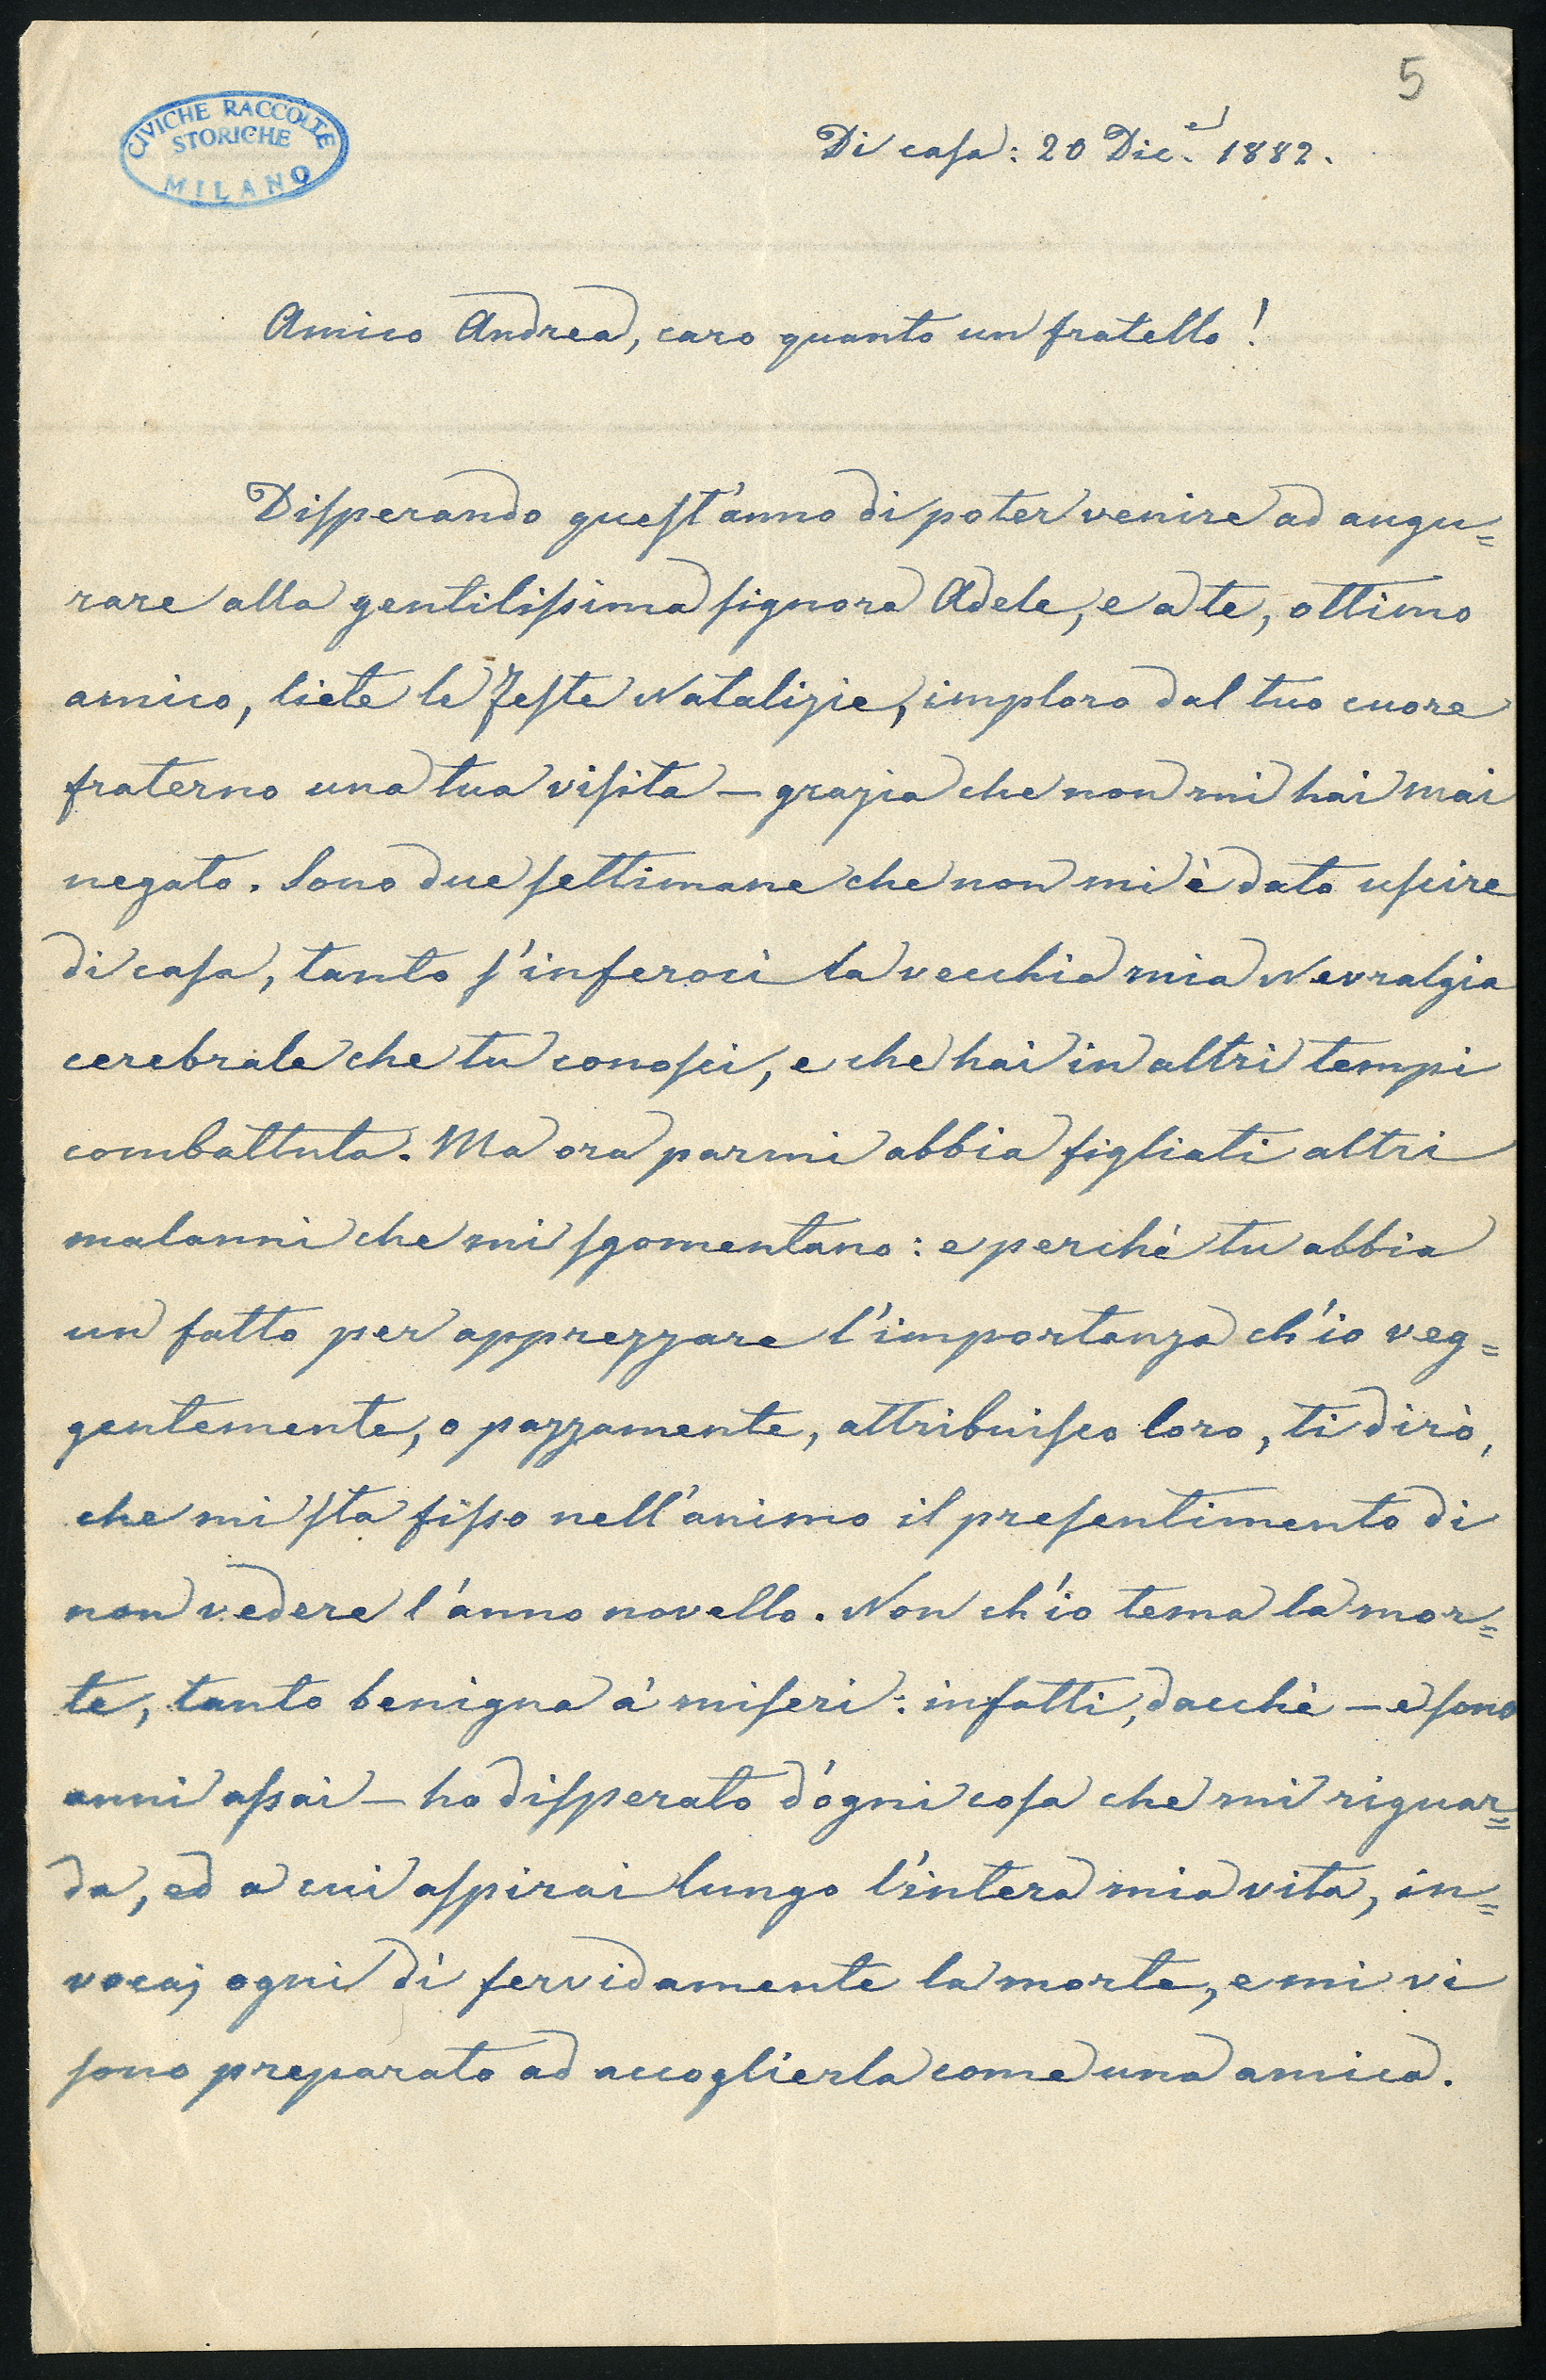 5
CIVICHE RACCOLTE
STORICHE
MILANO
Di casa: 20 Dic.e 1882.
Amico Andrea, caro quanto un fratello!
Disperando quest'anno di poter venire ad augu=
rare alla gentilissima signora Adele, e a te, ottimo
amico, liete le Feste Natalizie, imploro dal tuo cuore
fraterno una tua visita — grazia che non mi hai mai
negato. Sono due settimane che non mi è dato uscire
di casa, tanto s'inferocì la vecchia mia Nevralgia
cerebrale che tu conosci, e che hai in altri tempi
combattuta. Ma ora parmi abbia figliati altri
malanni che mi sgomentano: e perchè tu abbia
un fatto per apprezzare l'importanza ch'io veg=
gentemente, o pazzamente, attribuisco loro, ti dirò,
che mi sta fisso nell'animo il presentimento di
non vedere l'anno novello. Non ch'io tema la mor=
te, tanto benigna a' miseri: infatti, dacchè — e sono
anni assai — ho disperato d'ogni cosa che mi riguar=
da, ed a cui aspirai lungo l'intera mia vita, in=
vocai ogni dì fervidamente la morte, e mi vi
sono preparato ad accoglierla come una amica.